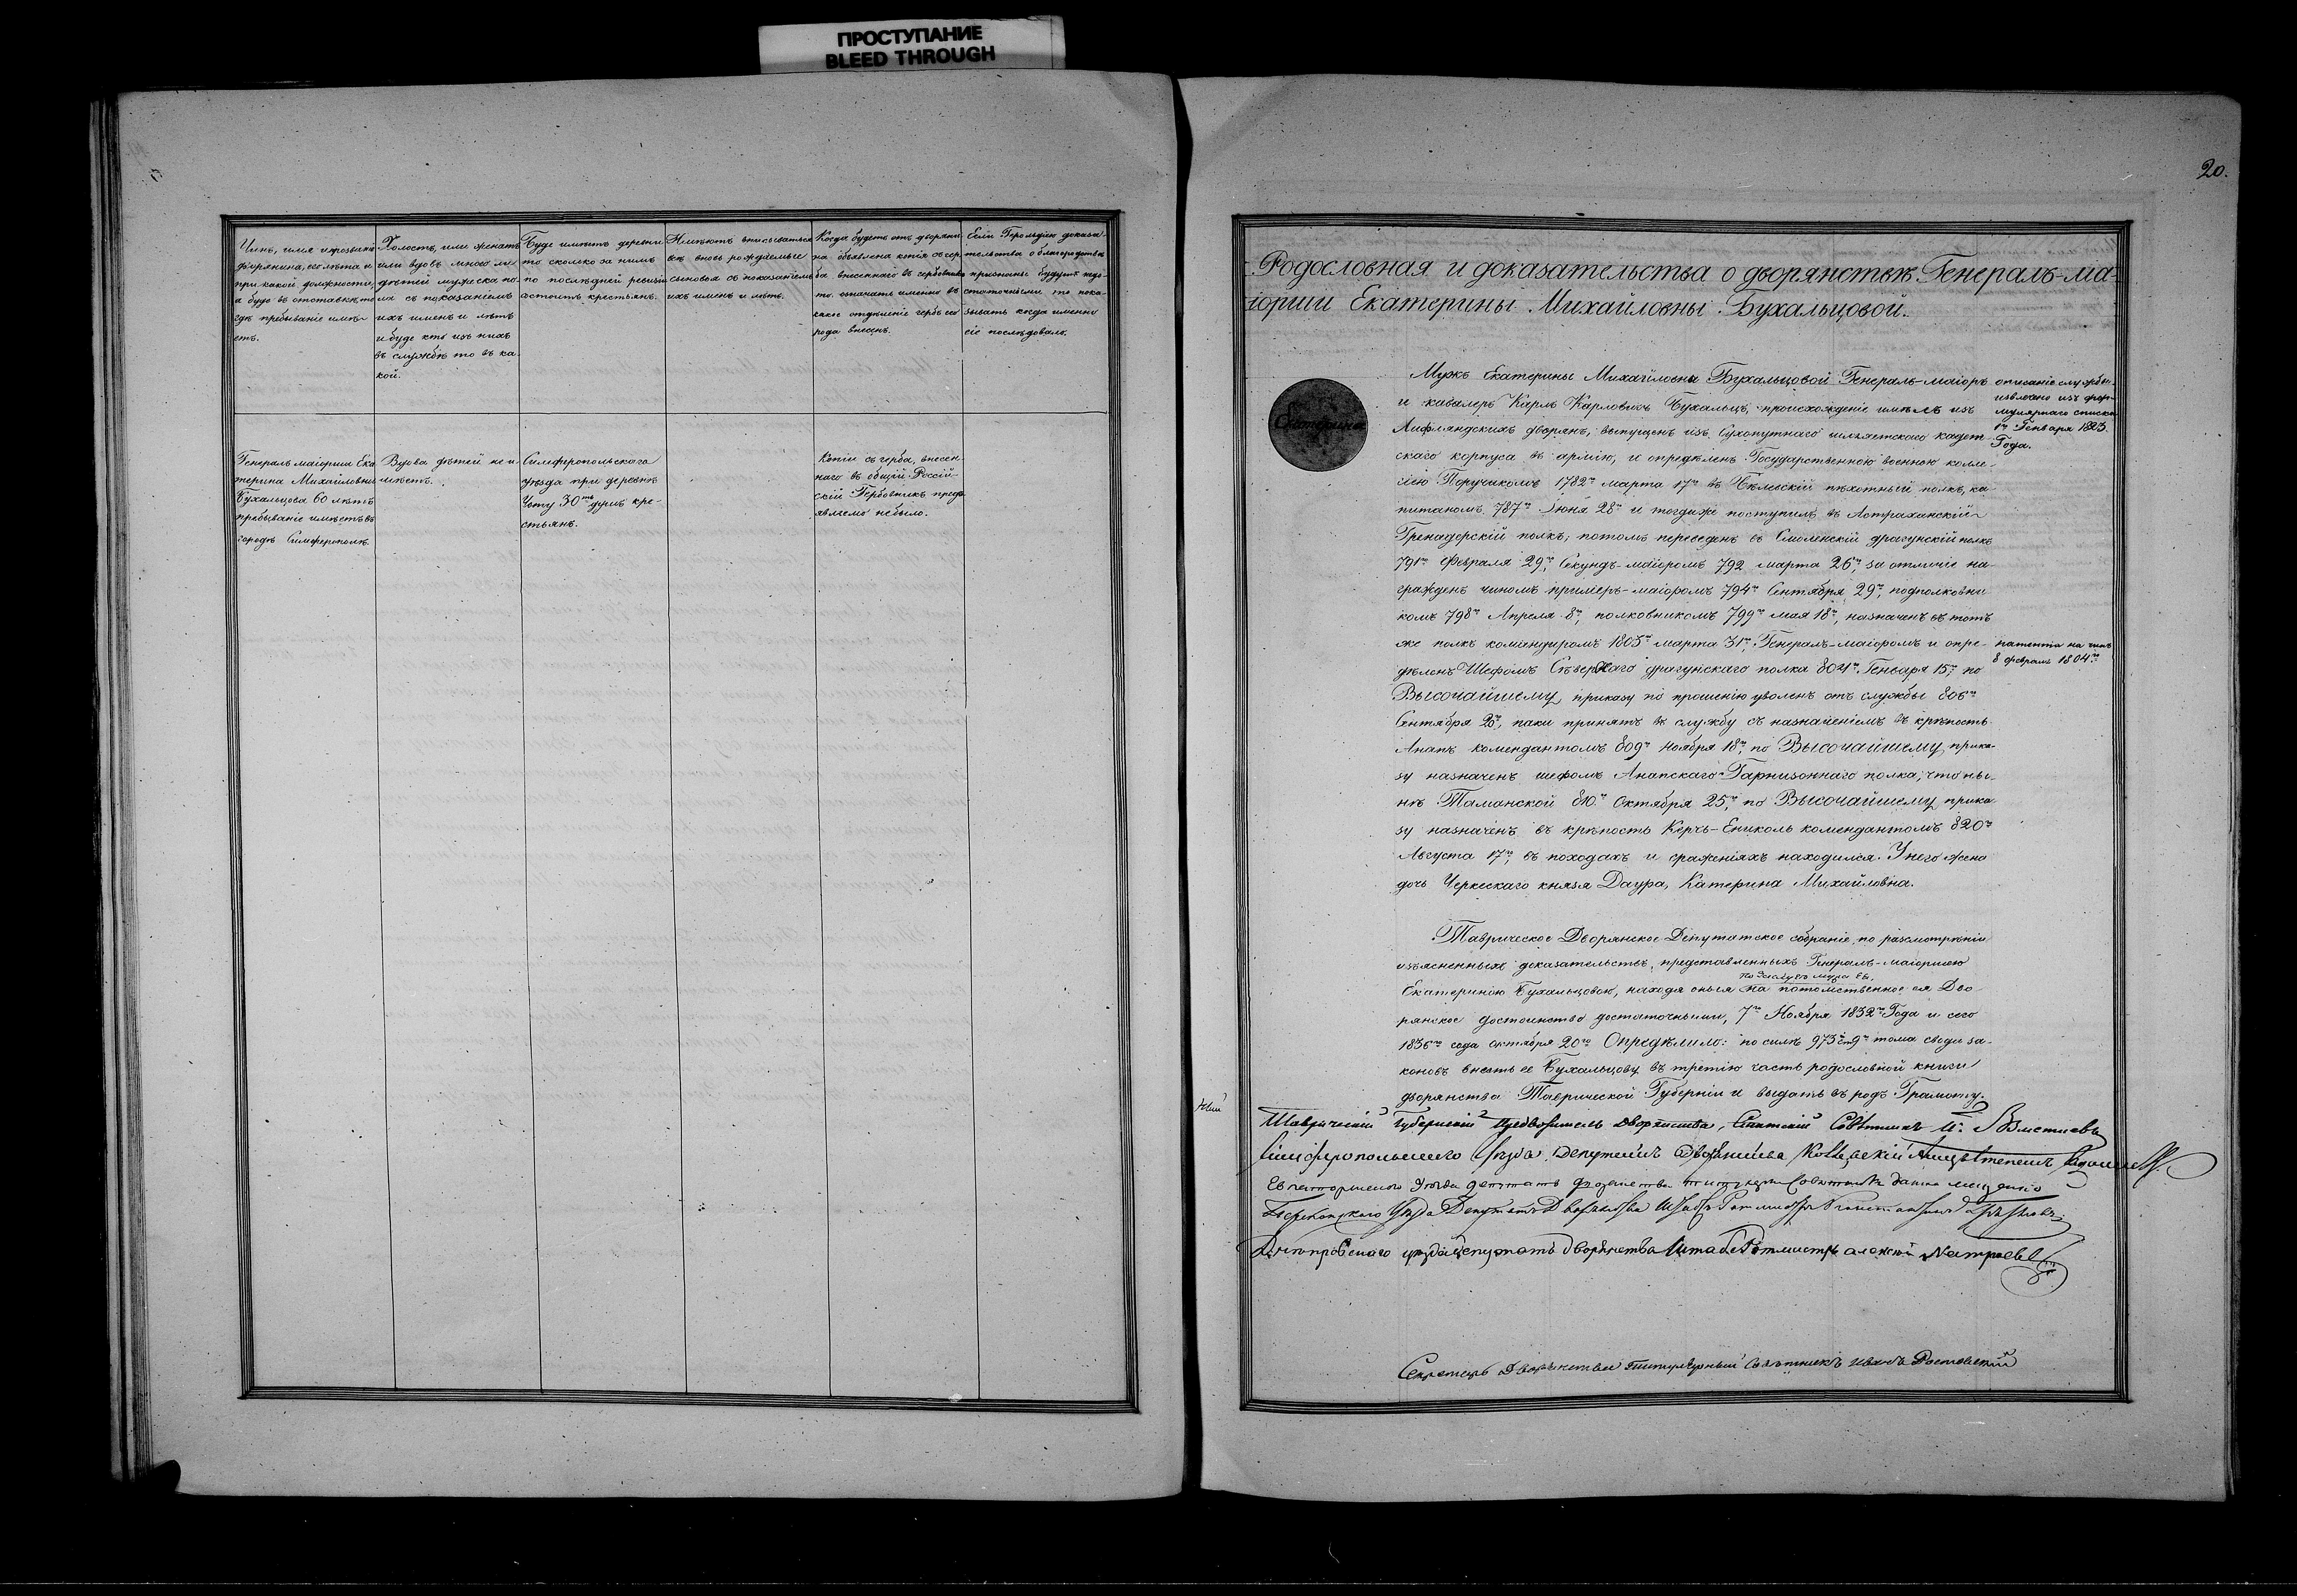 ПРОСТУПАНИЕ
BLEED THROUGH
20.
Чинъ, имя и прозваніе
дворянина, его лѣта и
при какой должности,
а буде въ отставкѣ, то
гдѣ пребываніе имѣ-
етъ.
Холостъ, или женатъ
или вдовъ, много ли
дѣтей мужеска по-
ла съ показаніемъ
ихъ именъ и лѣтъ
и буде кто изъ нихъ
въ службѣ то въ ка-
кой.
Буде имѣетъ деревни
то сколько за нимъ
по послѣдней ревизіи
состоитъ крестьянъ.
Имѣютъ вписываться
всѣ вновь рождаемые
сыновья съ показаніемъ
ихъ именъ и лѣтъ.
Когда будетъ отъ дворяни-
на объявлена копія съ гер-
ба внесеннаго въ гербовникъ
то означать именно въ
какое отдѣленіе гербъ его
рода внесенъ.
Если Герольдіею доказа-
тельства о благородствѣ
признаны будутъ недо-
статочными то пока-
зывать когда именно
сіе послѣдовало.
Генералъ маіорша Ека
терина Михайловна
Бухальцова 60 лѣтъ
пребываніе имѣетъ въ
городѣ Симферополѣ.
Вдова дѣтей не и-
мѣетъ.
Симферопольскаго
уѣзда при деревнѣ
30ть душъ кре-
стьянъ.
Копіи съ герба, внесен-
наго въ общій Россій-
скій Гербовникъ предъ
являемо небыло.
Родословная и доказательства о дворянствѣ Генералъ-ма-
іорши Екатерины Михайловны Бухальцовой.
Екатерина
Мужъ Екатерины Михайловны Бухальцовой Генералъ-маіоръ
и кавалеръ Карлъ Карловичъ Бухальцъ, происхожденіе имѣлъ изъ
Лифляндскихъ дворянъ, выпущенъ изъ Сухопутнаго шляхетскаго кадет-
скаго корпуса въ армію, и опредѣленъ Государственною военною колле-
гіею Поручикомъ 1782го марта 17го въ Бѣлевскій пѣхотный полкъ, ка-
питаномъ 787го Іюня 28го и тогдаже поступилъ въ Астраханскій
Гренадерскій полкъ; потомъ переведенъ въ Смоленскій драгунскій полкъ
791го Февраля 29го, Секундъ-маіоромъ 792 марта 26го, за отличіе на-
гражденъ чиномъ примеръ-маіоромъ 794го Сентября 29го, подполковни
комъ 798го Апреля 8го, полковникомъ 799го мая 18го, назначенъ въ тотъ
же полкъ командиромъ 1803го марта 31го, Генералъ-маіоромъ и опре-
дѣленъ Шефомъ Сѣверскаго драгунскаго полка 804го Генваря 15го, по
Высочайшему приказу по прошенію уволенъ отъ службы 806го
Сентября 26го, паки принятъ въ службу съ назначеніемъ въ крѣпость
Анапъ комендантомъ 809го Ноября 18го, по Высочайшему прика-
зу назначенъ шефомъ Анапскаго Гарнизоннаго полка, что ны-
нѣ Таманской 810го Октября 25го, по Высочайшему прика-
зу назначенъ въ крѣпость Керчь-Ениколь комендантомъ 820го
Августа 17го, въ походахъ и сраженіяхъ находился. У него жена
дочь Черкескаго князя Даура, Катерина Михайловна.
описаніе службы
извлечено изъ фор-
мулярнаго списка
1го Генваря 1823
Года.
патента на чинъ
8 февраля 1804го
Таврическое Дворянское Депутатское собраніе, по разсмотрѣніи
изъясненныхъ доказательствъ, представленныхъ Генералъ-маіоршею
по заслугѣ мужа ея,
Екатериною Бухальцовою, находя оныя на потомственное ея Дво
рянское достоинство достаточными, 7го Ноября 1832го Года и сего
1836го года октября 20го Опредѣлило: по силѣ 973й ст. 9го тома свода за-
коновъ внесть ее Бухальцову въ третію часть родословной книги
дворянства Таврической Губерніи и выдать въ родъ Грамоту.
Таврическій Губернскій Предводитель Дворянства, Статскій Совѣтникъ
Симферопольскаго Уѣзда Депутатъ Дворянства
Евпаторійскаго Уѣзда депутатъ дворянства титулярн. Совѣтникъ
Перекопскаго Уѣзда Депутатъ Дворянства Штабсъ Ротмистръ
Днѣпровскаго уѣзда депутатъ дворянства Штабсъ Ротмистръ алексѣй
Секретарь Дворянства Титулярный Совѣтникъ Иванъ